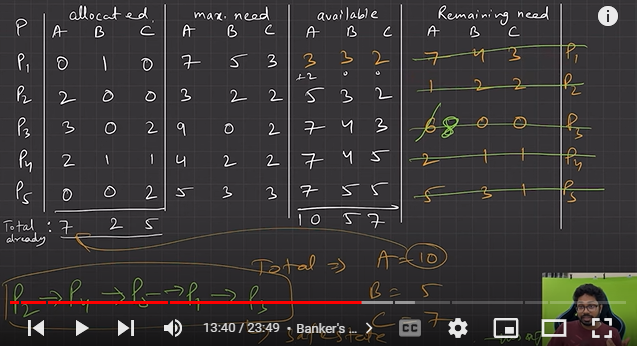 allocated. max. need available Remaining need
P A B C A B C A B C A B C
P1 0 1 0 7 5 3 3 3 2 7 4 3 P1
+2 0 0
P2 2 0 0 3 2 2 5 3 2 1 2 2 P2
P3 3 0 2 9 0 2 7 4 3 6 8 0 0 P3
P4 2 1 1 4 2 2 7 4 5 2 1 1 P4
P5 0 0 2 5 3 3 7 5 5 5 3 1 P5
Total already : 7 2 5 10 5 7
Total => A = 10
B = 5
C = 7
P2 → P4 → P5 → P1 → P3
safe state
13:40 / 23:49 • Banker's ... >
CC